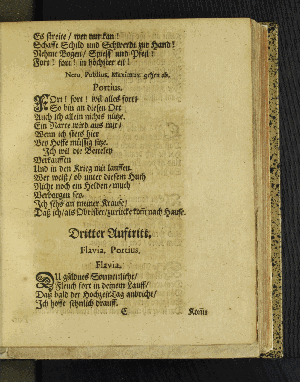 Es streite / wer nur kan!
Schafft Schild und Schwerdt zur Hand!
Nehmt Bogen / Spieß und Pfeil!
Fort! fort! in höchster eil!
Nero, Publius, Maximus, gehen ab.
Portius.
FOrt! fort! wil alles fort /
So bin an diesen Ort
Auch ich allein nichts nütze.
Ein Narre wird aus mir /
Wenn ich stets hier
Bey Hoffe müssig sitze.
Ich wil die
Verkauffen
Und in den Krieg mit lauffen.
Wer weiß / ob unter diesem Huth
Nicht noch ein Helden-muth
Verborgen sey.
Ich sehs an meiner Krause /
Daß ich / als Obrister / zurücke kom nach Hause.
Dritter Aufftritt,
Flavia, Portius.
Flavia.
DU güldnes Sonnenliecht /
Fleuch fort in deinem Lauff /
Daß bald der Hochzeit-Tag anbricht /
Ich hoffe sehnlich drauff.
C